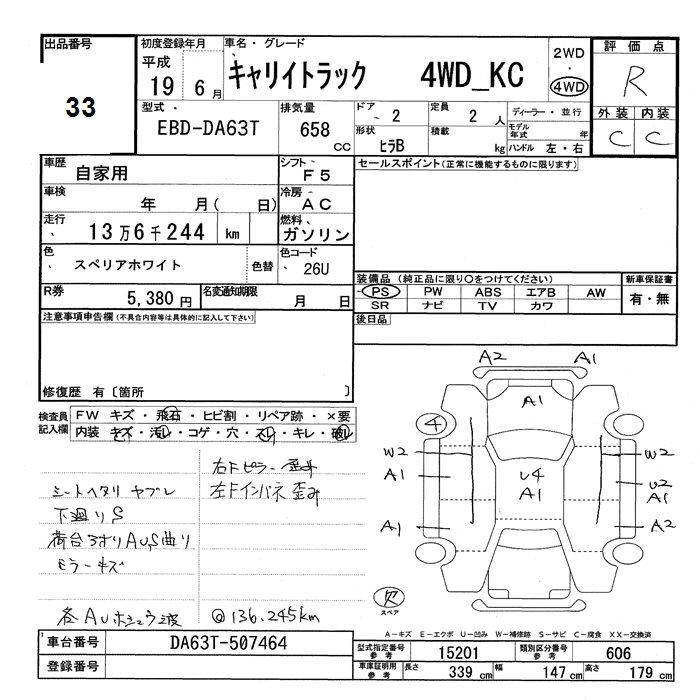 出品番号
33
初度登録年月
平成
19 6月
車名・グレード
キャリイトラック 4WD_KC
2WD
・
4WD
評価点
R
外装 内装
C C
型式
EBD-DA63T
排気量
658
CC
ドア
2
形状
ヒラB
定員
2 人
積載
kg
ディーラー・並行
モデル年式 年
ハンドル 左・右
車歴
自家用
シフト
F5
車検
年 月( 日)
冷房
AC
走行
13万6千244 km
燃料
ガソリン
色
スペリアホワイト
色替
色コード
26U
R券
5,380円
名変通知期限
月 日
セールスポイント(正常に機能するものに限ります)
装備品 (純正品に限り〇をつけてください)
PS PW ABS エアB AW
SR ナビ TV カワ
新車保証書
有・無
後日品
注意事項申告欄 (不具合内容等は具体的に記入して下さい)
修復歴 有〔箇所 〕
検査員
記入欄
FW キズ・飛石・ヒビ割・リペア跡・×要
内装 キズ・汚レ・コゲ・穴・スレ・キレ・破レ
右Fピラー歪み
左Fインパネ歪み
シートヘタリ ヤブレ
下廻りS
荷台3オリAU,S曲り
ミラーキズ
各AUホシュウ波
@136.245km
A2 A1
A1
4
W2 W2
A1 U4 U2
A1 A1
A1 A2
欠
スペア
A-キズ E-エクボ U-凹み W-補修跡 S-サビ C-腐食 XX-交換済
車台番号
DA63T-507464
登録番号
型式指定番号
参考
15201
類別区分番号
参考
606
車庫証明用
参考
長さ 339 cm 幅 147 cm 高さ 179 cm